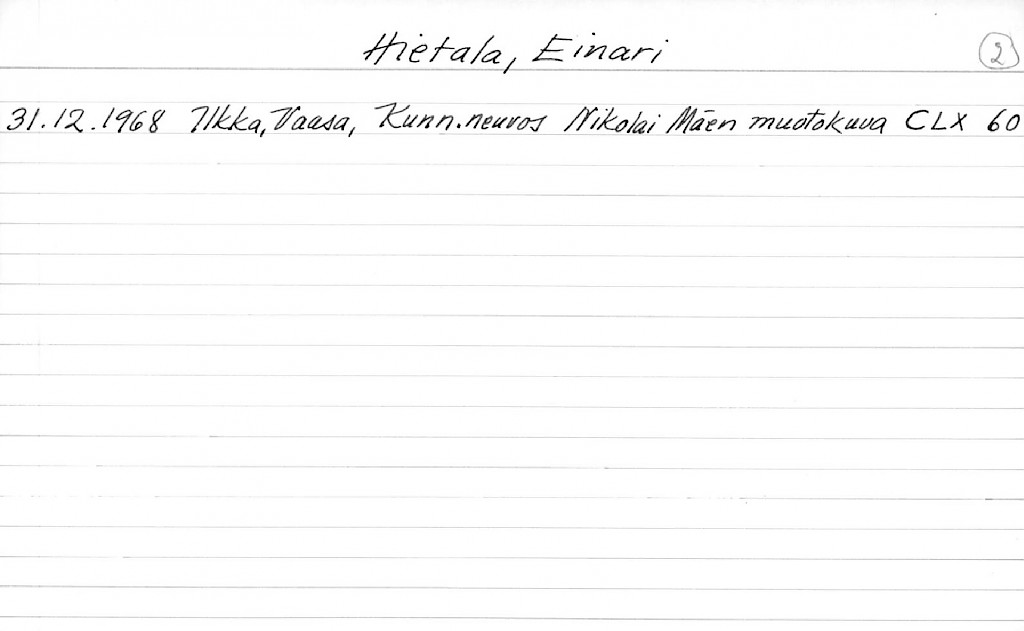 Hietala, Einari 2
31.12.1968 Ilkka, Vaasa, Kunn.neuvos Nikolai Mäen muotokuva CLX 60